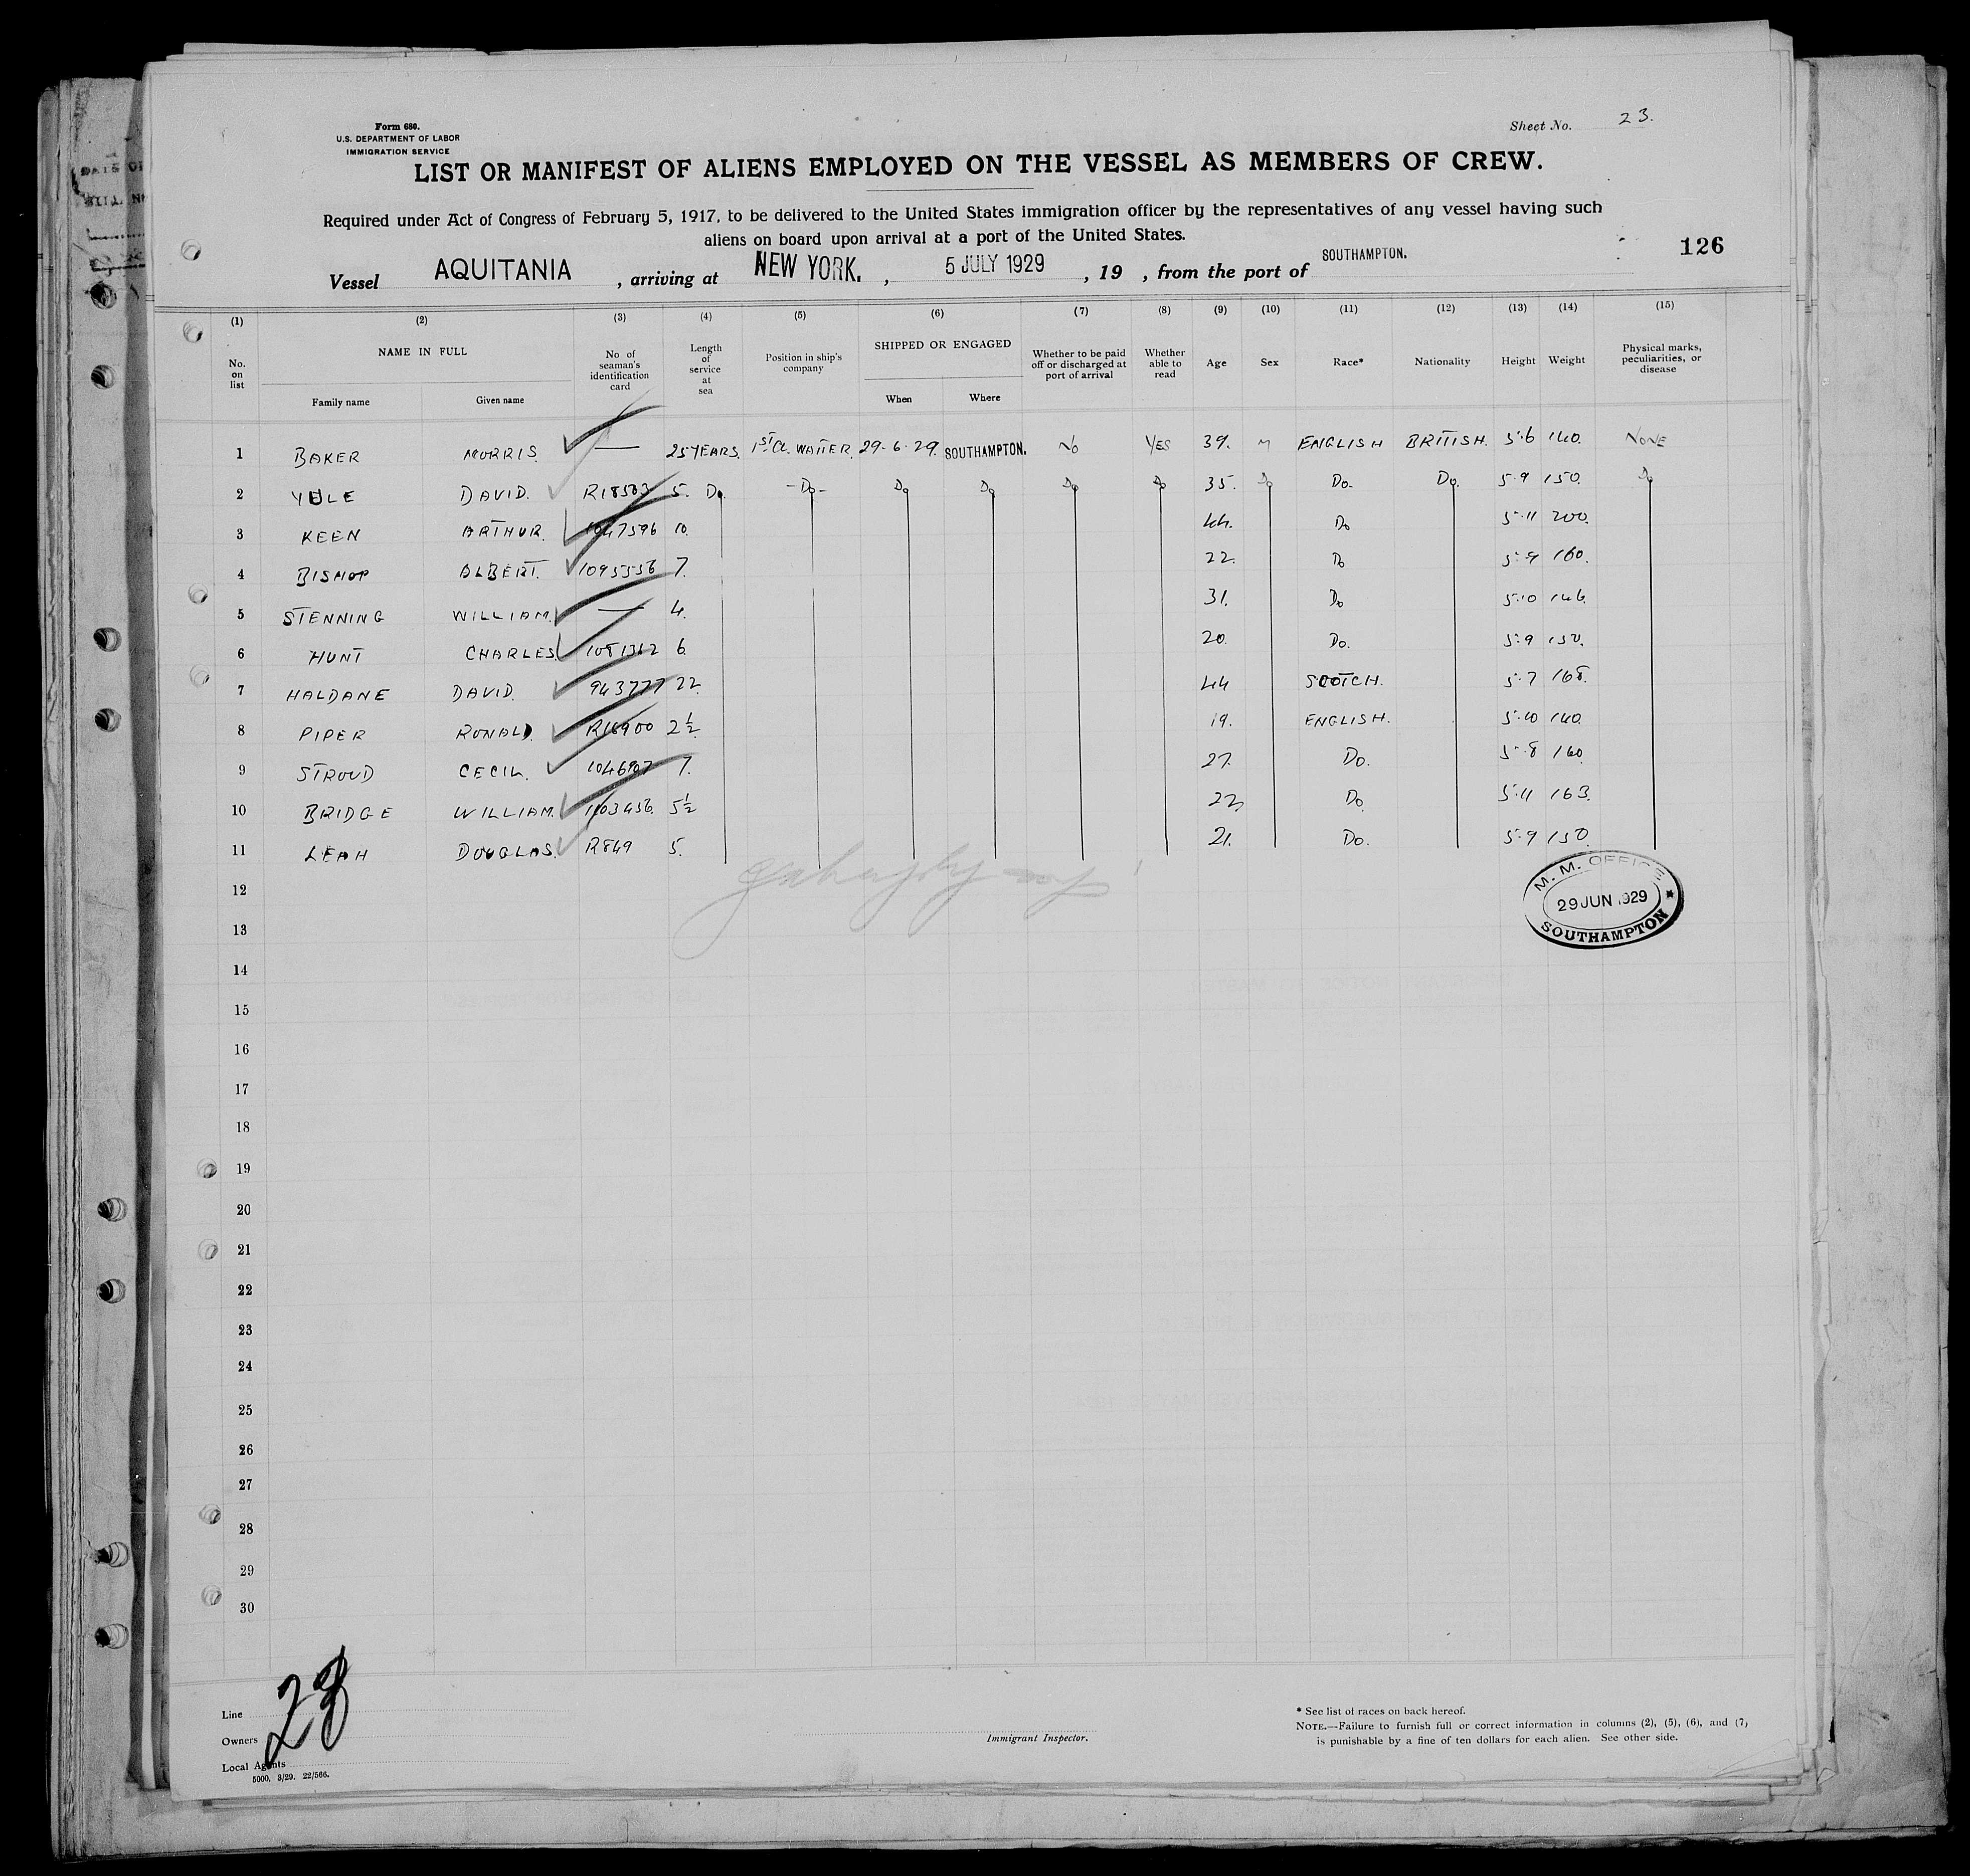 Form 680.
U.S. DEPARTMENT OF LABOR
IMMIGRATION SERVICE
Sheet No. 23.
LIST OR MANIFEST OF ALIENS EMPLOYED ON THE VESSEL AS MEMBERS OF CREW.
Required under Act of Congress of February 5, 1917, to be delivered to the United States immigration officer by the representatives of any vessel having such
aliens on board upon arrival at a port of the United States.
126
Vessel AQUITANIA, arriving at NEW YORK., 5 JULY 1929, 19 , from the port of SOUTHAMPTON.
(1) (2) (3) (4) (5) (6) (7) (8) (9) (10) (11) (12) (13) (14) (15)
No. on list
NAME IN FULL
Family name Given name
No of seaman's identification card
Length of service at sea
Position in ship's company
SHIPPED OR ENGAGED
When Where
Whether to be paid off or discharged at port of arrival
Whether able to read
Age
Sex
Race*
Nationality
Height
Weight
Physical marks, peculiarities, or disease
1 BAKER MORRIS. — 25 YEARS. 1ST CL. WAITER. 29-6-29. SOUTHAMPTON. NO YES 39. M ENGLISH BRITISH. 5.6 140. NONE
2 YULE DAVID. R18503 5. Do. -Do- Do Do Do Do 35. Do Do. Do. 5.9 150. Do
3 KEEN ARTHUR. 1047596 10. 44. Do 5.11 200.
4 BISHOP ALBERT. 1095556 7. 22. Do 5.9 160.
5 STENNING WILLIAM. — 4. 31. Do 5.10 146.
6 HUNT CHARLES. 6. 20. Do. 5.9 150.
7 HALDANE DAVID. 943777 22. 44 SCOTCH. 5.7 168.
8 PIPER RONALD. R16900 2½ 19. ENGLISH. 5.10 140.
9 STROUD CECIL. 1046907 7. 27. Do. 5.8 160.
10 BRIDGE WILLIAM. 1103456. 5½ Do. 5.11 163.
11 LEAH DOUGLAS. R849 5. 21. Do. 5.9 150.
M. M. OFFICE
29 JUN 1929
SOUTHAMPTON
12
13
14
15
16
17
18
19
20
21
22
23
24
25
26
27
28
29
30
Line
Owners
Local Agents
5000, 3/29. 22/566.
Immigrant Inspector.
* See list of races on back hereof.
NOTE.—Failure to furnish full or correct information in columns (2), (5), (6), and (7,
is punishable by a fine of ten dollars for each alien. See other side.